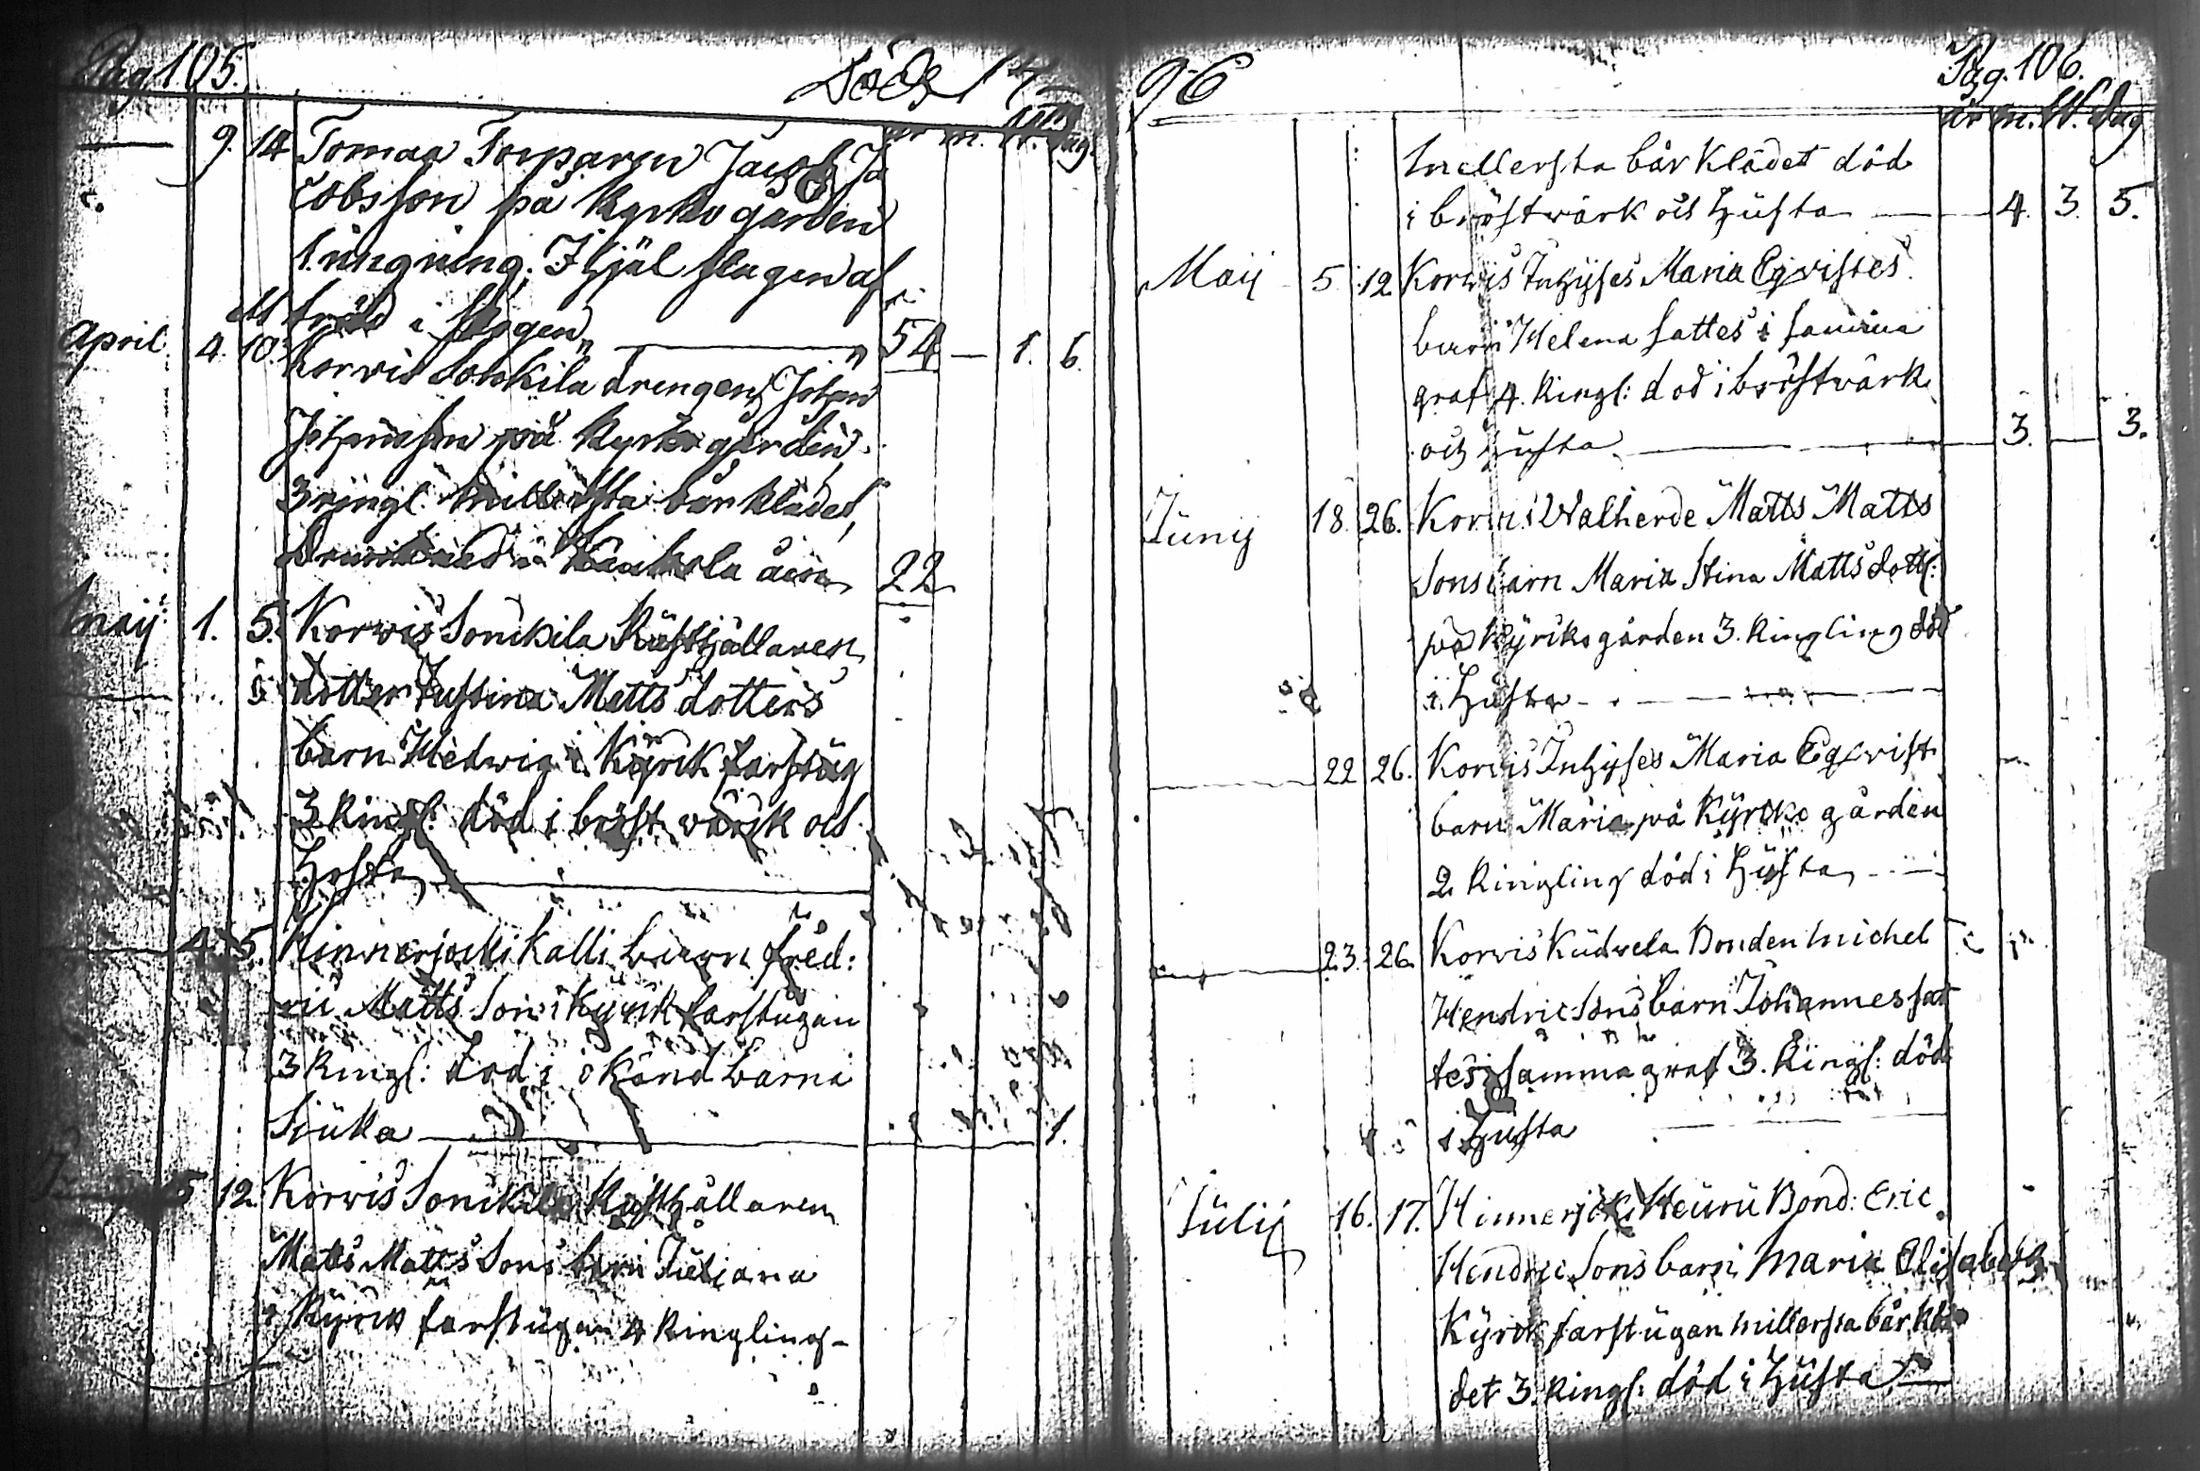 Pag 105. Döde 17
år m. W. Dag
9. 14 Tomas Torparen Jacob Ja
cobsson på Kyrko gården
1. ringning. Ihjäl slagen af
träd i skogen 54 — 1. 6.
April 4. 10. Korvis Sonkila drengen Johan
Johansson på Kyrko gården
3 ringl. millersta bår klädet,
åen 22
Maij 1. 5. Korwis Sonikila Rusthjållaren
dotter Justina Matts dotters
barn Hedwig i Kyrck farstug
3 Ringl: död i bröst wärck och
Hosta
4. 5. Kinnerjocki Kalli barn fred:
ric Matts Son i Kyrck farstugan
3 Ringl: död i okänd barna
Siuka 1.
5 12. Korwis Sonikila Rusthållaren
Matts Matts Sons barn Juliana
i Kyrck farstugan 4 Ringling
96 Pag. 106.
år m. W. Dag
mellersta bår Klädet död
i bröstwärk och Husta 4. 3. 5.
Maij 5 12 Korwis Inhyses Maria Eqvistes
barn Helena sattes i samma
graf 4. Ringl: död i bröstwärk
och Husta 3. 3.
Junij 18. 26. Korwis Walherde Matts Matts
Sons barn Maria Stina Matts dott:
på Kyrko gården 3. Ringling död
i Husta
22 26. Korwis Inhyses Maria Eqvist
barn Maria på Kyrcko gården
2 Ringling död i Husta
23. 26 Korvis Kudvela Bonden Michel
Hendric Sons barn Johannes sat
tes i samma graf 3. Ringl: död
i Husta
Julij 16. 17. Kinnerjocki Heuru Bond: Eric
Hendric Sons barn Maria Elisabeth
Kyrck farstugan millersta bår klä
det 3. Ringl: död i Husta